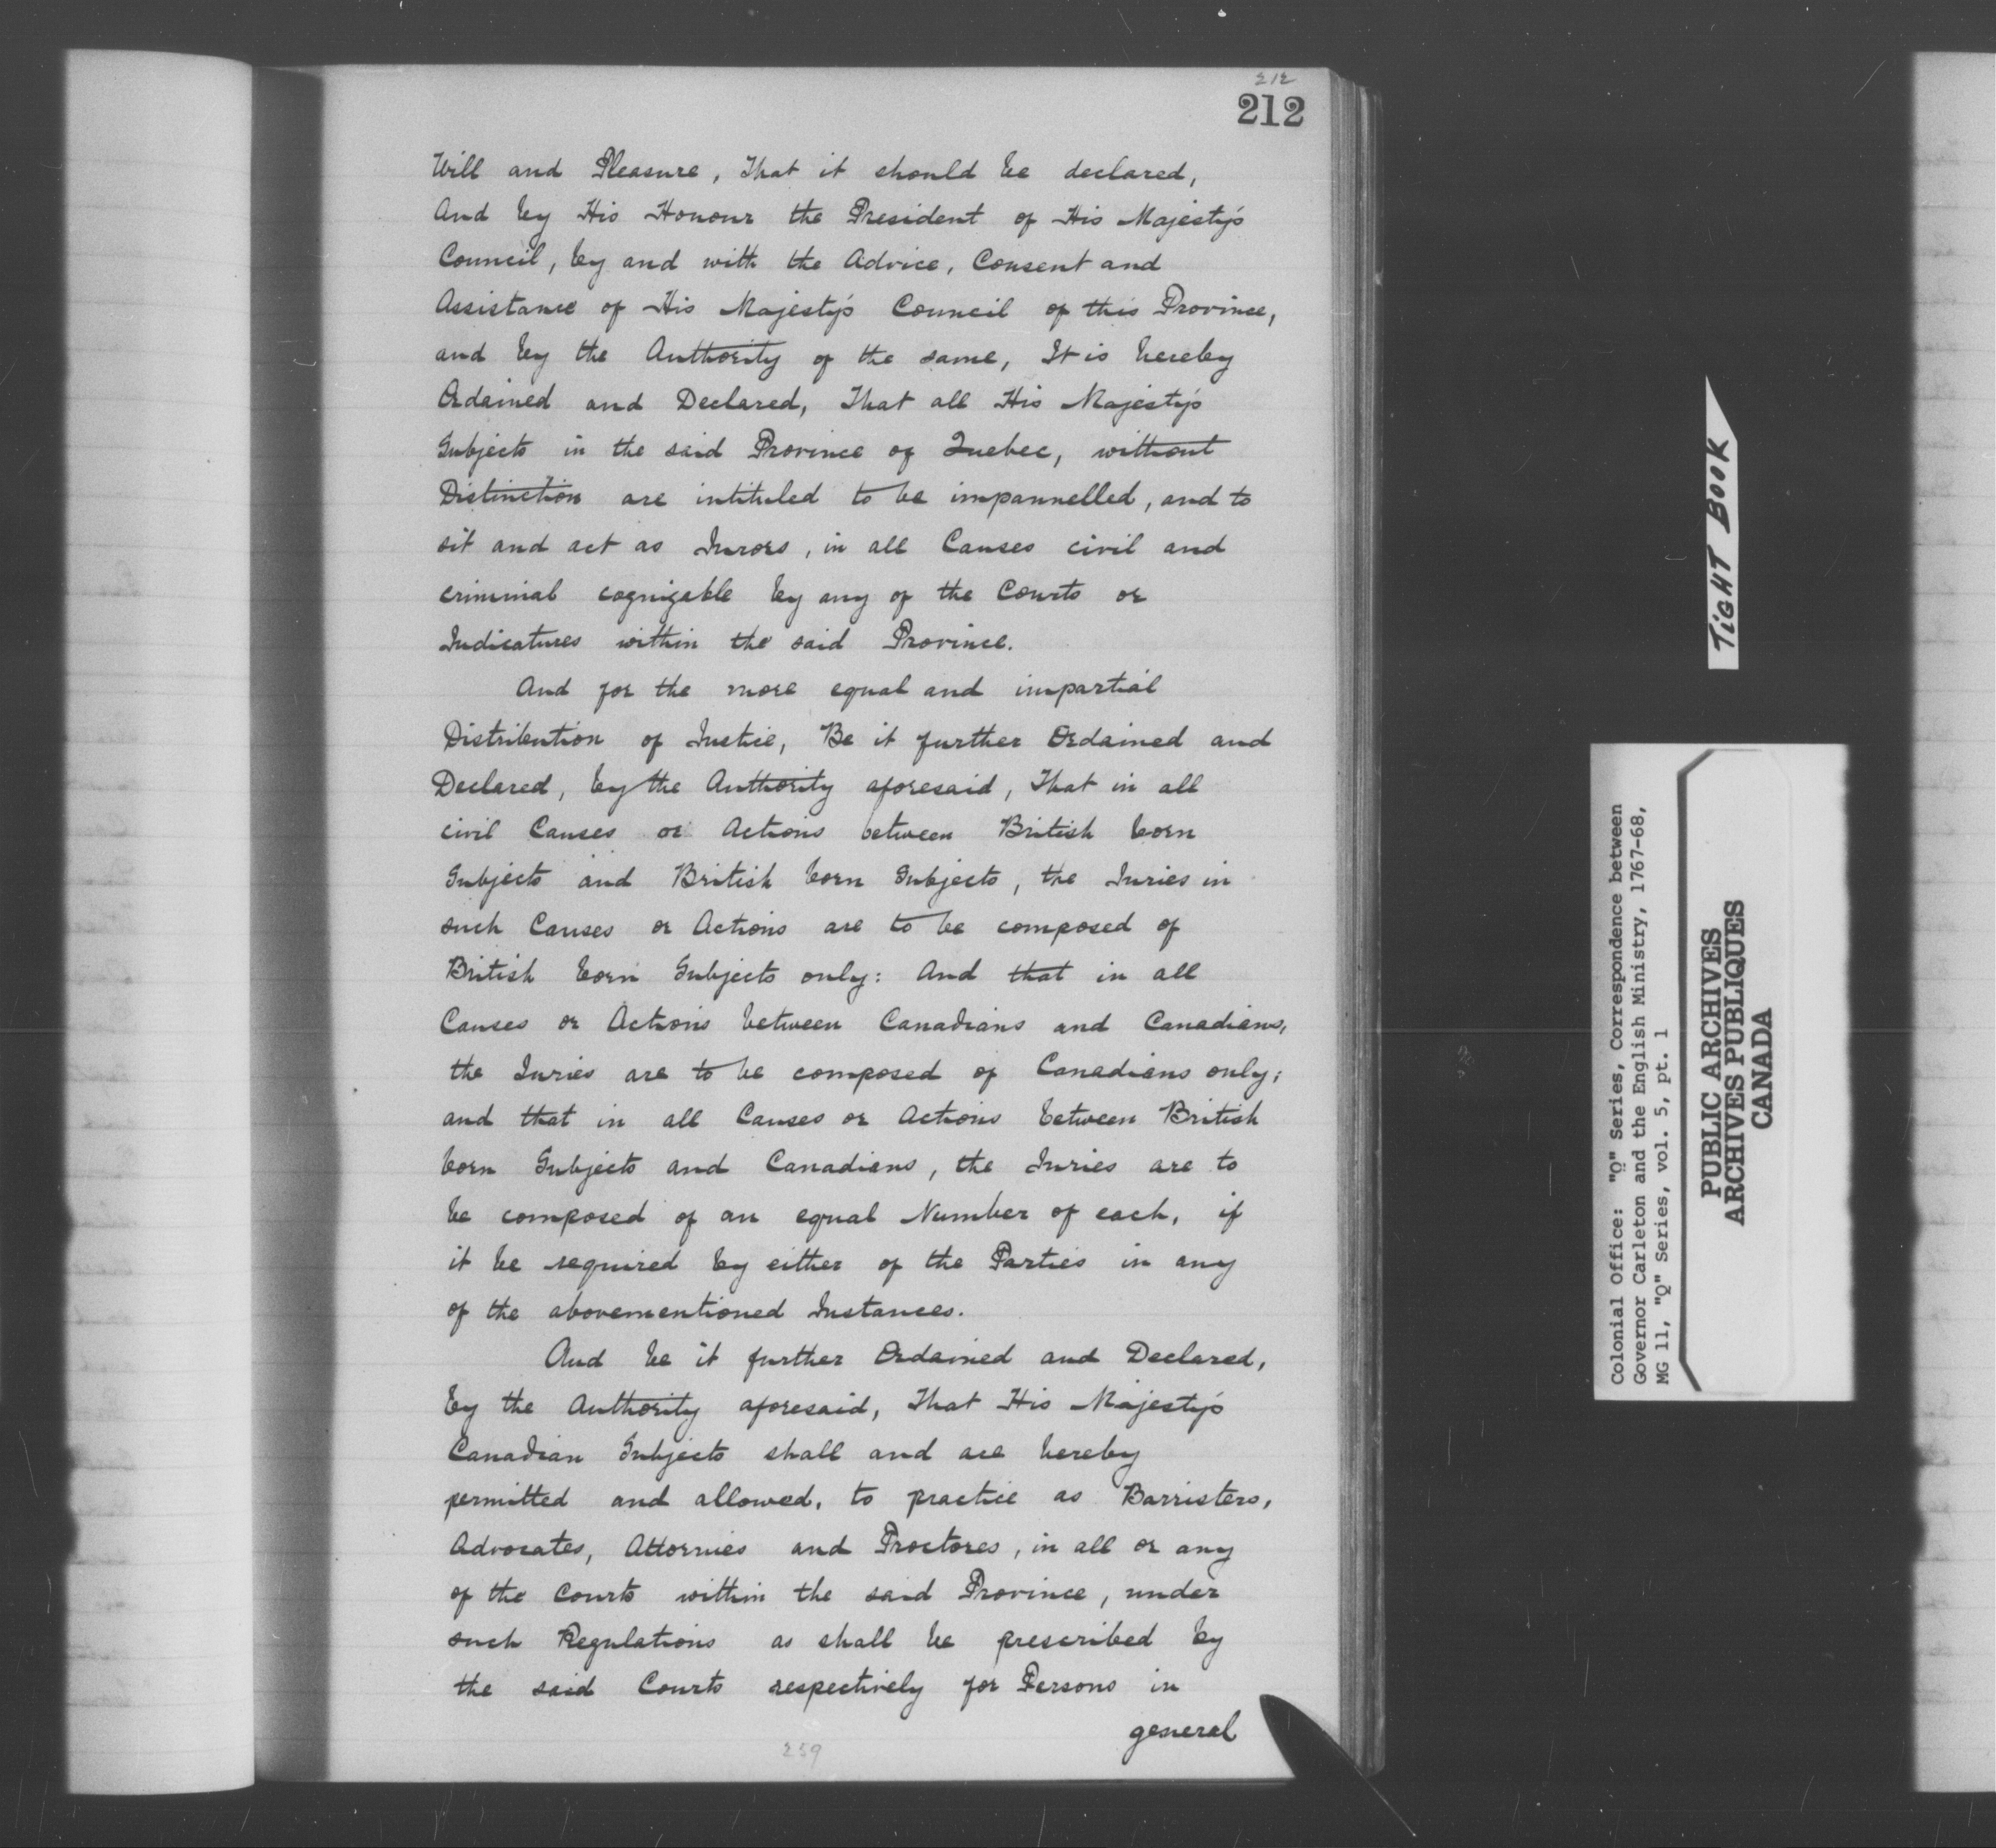 212
212
Will and Pleasure, That it should be declared,
And by His Honour the President of His Majesty's
Council, by and with the Advice, Consent and
Assistance of His Majesty's Council of this Province,
and by the Authority of the same, It is hereby
Ordained and Declared, That all His Majesty's
Subjects in the said Province of Quebec, without
Distinction are intituled to be impannelled, and to
sit and act as Jurors, in all Causes civil and
criminal cognizable by any of the Courts or
Judicatures within the said Province.
And for the more equal and impartial
Distribution of Justice, Be it further Ordained and
Declared, by the Authority aforesaid, That in all
civil Causes or Actions between British born
Subjects and British born Subjects, the Juries in
such Causes or Actions are to be composed of
British born Subjects only: And that in all
Causes or Actions between Canadians and Canadians,
the Juries are to be composed of Canadians only;
and that in all Causes or Actions between British
born Subjects and Canadians, the Juries are to
be composed of an equal Number of each, if
it be required by either of the Parties in any
of the abovementioned Instances.
And be it further Ordained and Declared,
by the Authority aforesaid, That His Majesty's
Canadian Subjects shall and are hereby
permitted and allowed, to practice as Barristers,
Advocates, Attornies and Proctores, in all or any
of the Courts within the said Province, under
such Regulations as shall be prescribed by
the said Courts respectively for Persons in
general
259
TIGHT BOOK
Colonial Office: "Q" Series, Correspondence between
Governor Carleton and the English Ministry, 1767-68,
MG 11, "Q" Series, vol. 5, pt. 1
PUBLIC ARCHIVES
ARCHIVES PUBLIQUES
CANADA